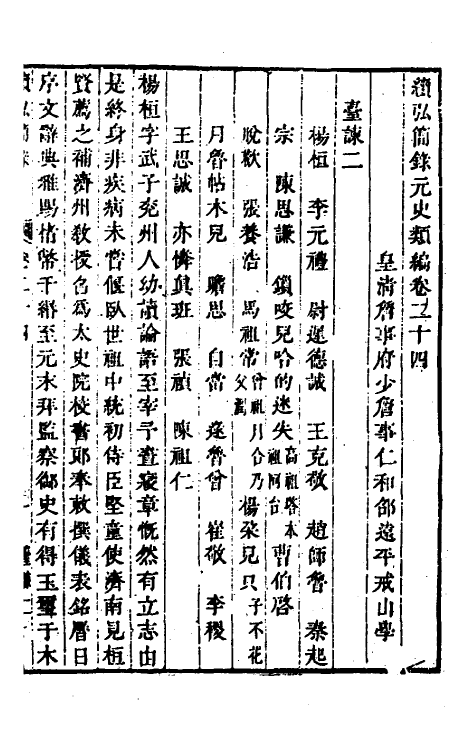 續弘簡錄元史類編卷二十四
皇清詹事府少詹事仁和邵遠平戒山學
臺諫二
楊桓 李元禮 尉遲德誠 王克敬 趙師魯 秦起
宗 陳思謙 鎖咬兒哈的迷失高祖塔本祖阿台 曹伯啓
脫歡 張養浩 馬祖常曾祖月合乃父潤 楊朶兒只子不花
月魯帖木兒 贍思 自當 逹魯曾 崔敬 李稷
王思誠 亦憐眞班 張禎 陳祖仁
楊桓字武子兗州人幼讀論語至宰予晝寢章慨然有立志由
是終身非疾病未嘗偃臥世祖中統初侍臣堅童使濟南見桓
賢薦之補濟州敎授召爲太史院校書郎奉敕撰儀表銘曆日
序文辭典雅賜楮幣千緡至元末拜監察御史有得玉璽于木